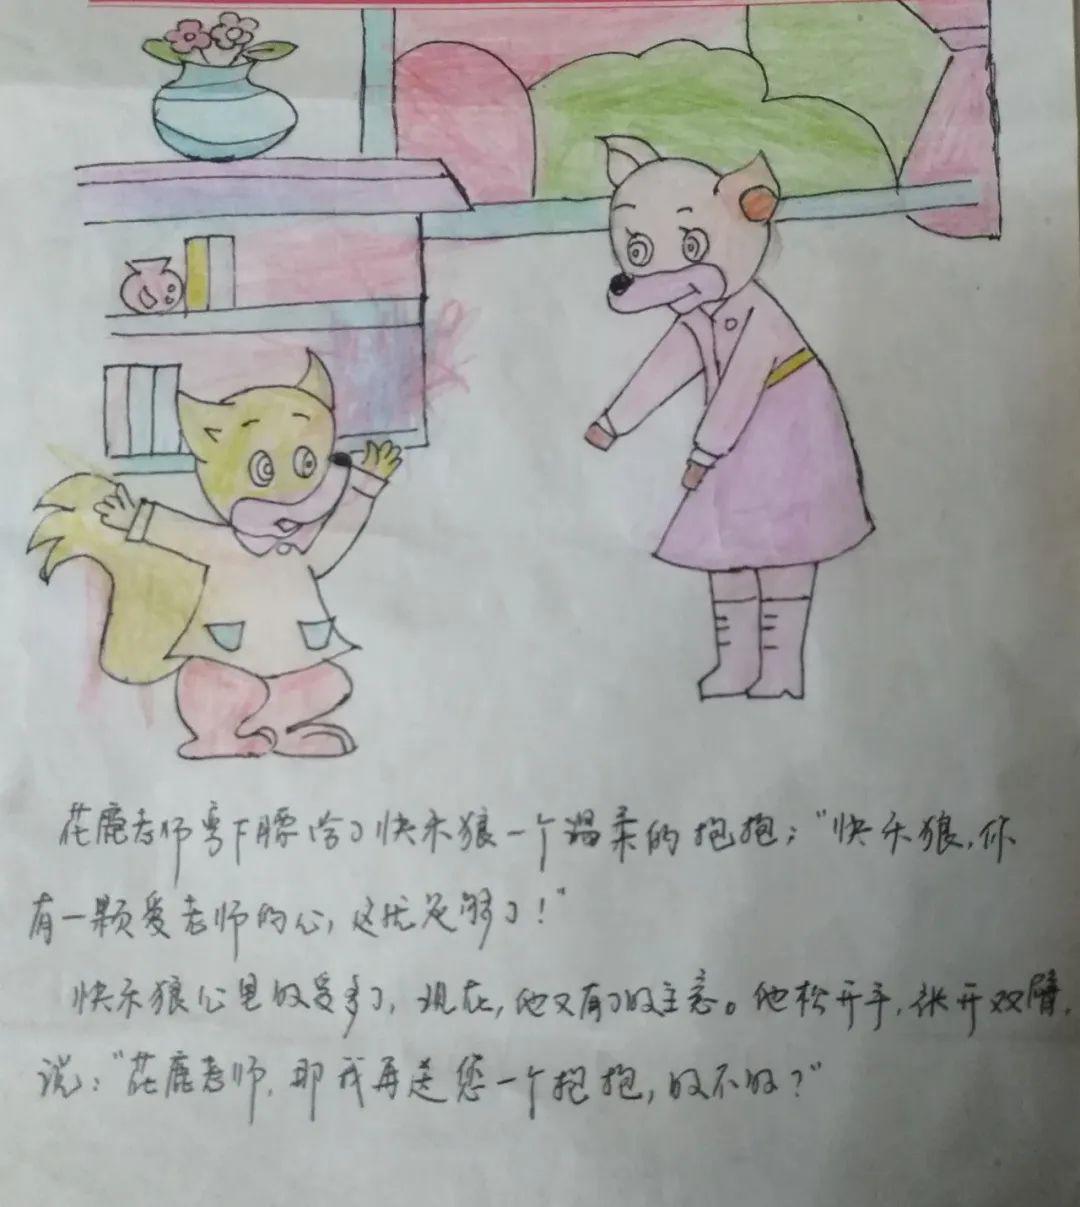 花鹿老师弯下腰给了快乐狼一个温柔的抱抱；“快乐狼，你
有一颗爱老师的心，这就足够了！”
快乐狼心里好受多了，现在，他又有了好主意。他松开手，张开双臂，
说：“花鹿老师，那我再送您一个抱抱，好不好？”